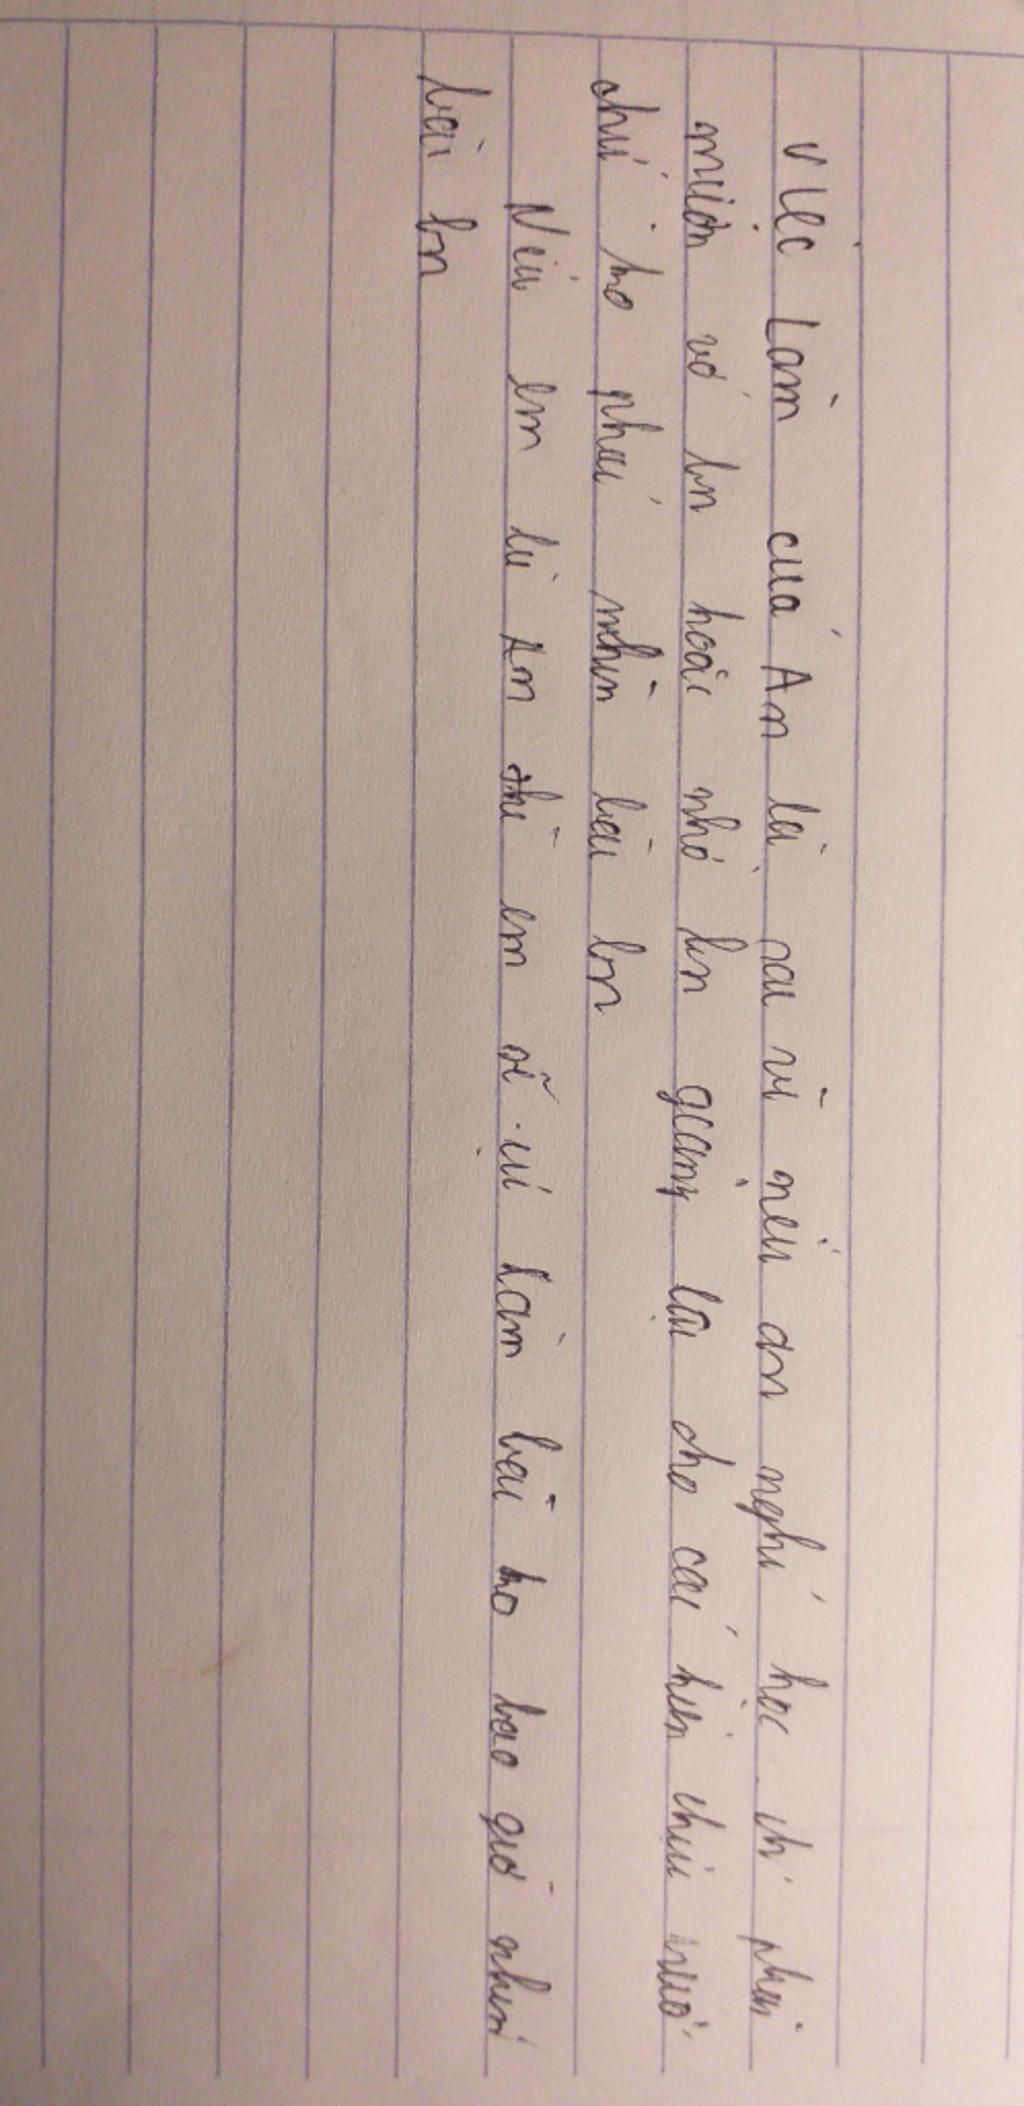 Việc Làm của An là sai vì nếu an nghỉ học thì phải
mượn vở bn hoặc nhờ bn giảng lại cho cái hiểu
chứ ko phải nhìn bài bn
Nếu em là An thì em sẽ Làm bài ko bao giờ nhìn
bài bn